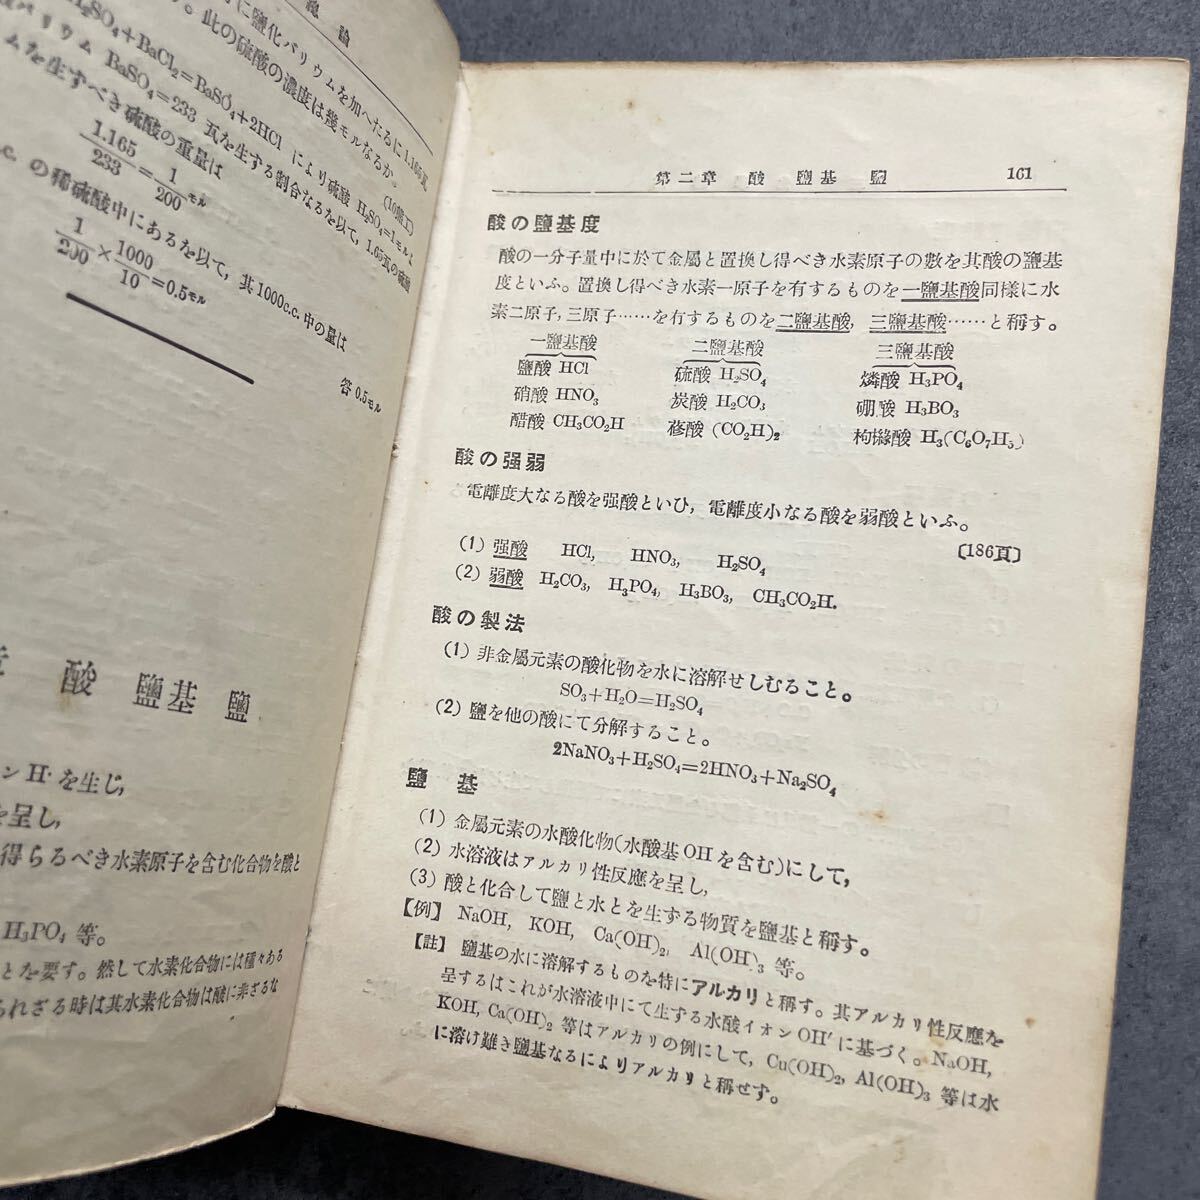 總論
に鹽化バリウムを加へたるに1.165瓦
。此の硫酸の濃度は幾モルなるか。
(10濱工)
H₂SO₄+BaCl₂=BaSO₄+2HCl により硫酸 H₂SO₄=1モルよ
バリウム BaSO₄=233 瓦を生する割合なるを以て, 1.65瓦の硫酸
ムを生すべき硫酸の重量は
1.165/233=1/200モル
c.c. の稀硫酸中にあるを以て, 其1000c.c.中の量は
1/200×1000/10=0.5モル
答 0.5モル
章 酸 鹽基 鹽
ン H· を生じ,
を呈し,
得らるべき水素原子を含む化合物を酸と
H₃PO₄ 等。
とを要す。然して水素化合物には種々ある
られざる時は其水素化合物は酸に非ざるな
第二章 酸 鹽基 鹽 161
酸の鹽基度
酸の一分子量中に於て金屬と置換し得べき水素原子の數を其酸の鹽基
度といふ。置換し得べき水素一原子を有するものを一鹽基酸同樣に水
素二原子, 三原子……を有するものを二鹽基酸, 三鹽基酸……と稱す。
一鹽基酸 二鹽基酸 三鹽基酸
鹽酸 HCl 硫酸 H₂SO₄ 燐酸 H₃PO₄
硝酸 HNO₃ 炭酸 H₂CO₃ 硼酸 H₃BO₃
醋酸 CH₃CO₂H 蓚酸 (CO₂H)₂ 枸櫞酸 H₃(C₆O₇H₅)
酸の强弱
電離度大なる酸を强酸といひ, 電離度小なる酸を弱酸といふ。
〔186頁〕
(1) 强酸 HCl, HNO₃, H₂SO₄
(2) 弱酸 H₂CO₃, H₃PO₄, H₃BO₃, CH₃CO₂H.
酸の製法
(1) 非金屬元素の酸化物を水に溶解せしむること。
SO₃+H₂O=H₂SO₄
(2) 鹽を他の酸にて分解すること。
2NaNO₃+H₂SO₄=2HNO₃+Na₂SO₄
鹽 基
(1) 金屬元素の水酸化物(水酸基 OH を含む)にして,
(2) 水溶液はアルカリ性反應を呈し,
(3) 酸と化合して鹽と水とを生ずる物質を鹽基と稱す。
【例】 NaOH, KOH, Ca(OH)₂, Al(OH)₃ 等。
【註】 鹽基の水に溶解するものを特にアルカリと稱す。其アルカリ性反應を
呈するはこれが水溶液中にて生する水酸イオン OH′ に基づく。NaOH,
KOH, Ca(OH)₂ 等はアルカリの例にして, Cu(OH)₂, Al(OH)₃ 等は水
に溶け難き鹽基なるによりアルカリと稱せず。